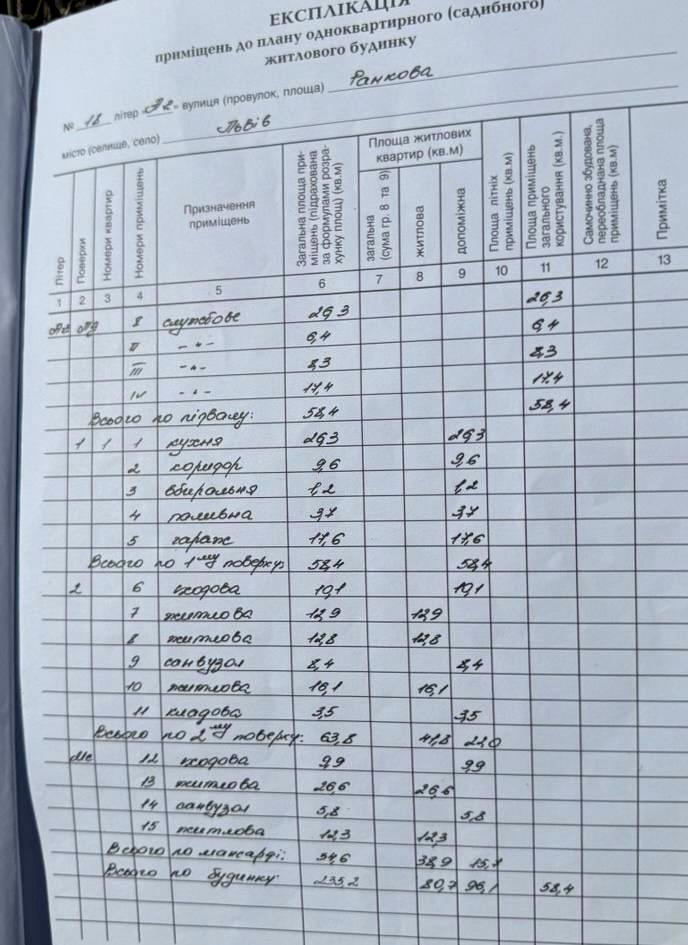 ЕКСПЛІКАЦІЯ
приміщень до плану одноквартирного (садибного)
житлового будинку
№ 18 літер А2 вулиця (провулок, площа) Ранкова
місто (селище, село) Львів
Літер
Поверхи
Номери квартир
Номери приміщень
Призначення приміщень
Загальна площа приміщень (підрахована за формулами розрахунку площ) (кв.м)
Площа житлових квартир (кв.м)
загальна (сума гр. 8 та 9)
житлова
допоміжна
Площа літніх приміщень (кв.м)
Площа приміщень загального користування (кв.м.)
Самочинно збудована, переобладнана площа приміщень (кв.м)
Примітка
1 2 3 4 5 6 7 8 9 10 11 12 13
А2 Пд I службове 26,3 26,3
II -"- 6,4 6,4
III -"- 8,3 8,3
IV -"- 17,4 17,4
Всього по підвалу: 58,4 58,4
1 1 1 кухня 26,3 26,3
2 коридор 9,6 9,6
3 вбиральня 1,2 1,2
4 паливна 3,7 3,7
5 гараж 17,6 17,6
Всього по 1му поверху: 58,4 58,4
2 6 сходова 10,1 10,1
7 житлова 12,9 12,9
8 житлова 12,8 12,8
9 санвузол 8,4 8,4
10 житлова 16,1 16,1
11 кладова 3,5 3,5
Всього по 2му поверху: 63,8 41,8 22,0
Мс 12 сходова 9,9 9,9
13 житлова 26,6 26,6
14 санвузол 5,8 5,8
15 житлова 12,3 12,3
Всього по мансарді: 54,6 38,9 15,7
Всього по будинку: 235,2 80,7 96,1 58,4